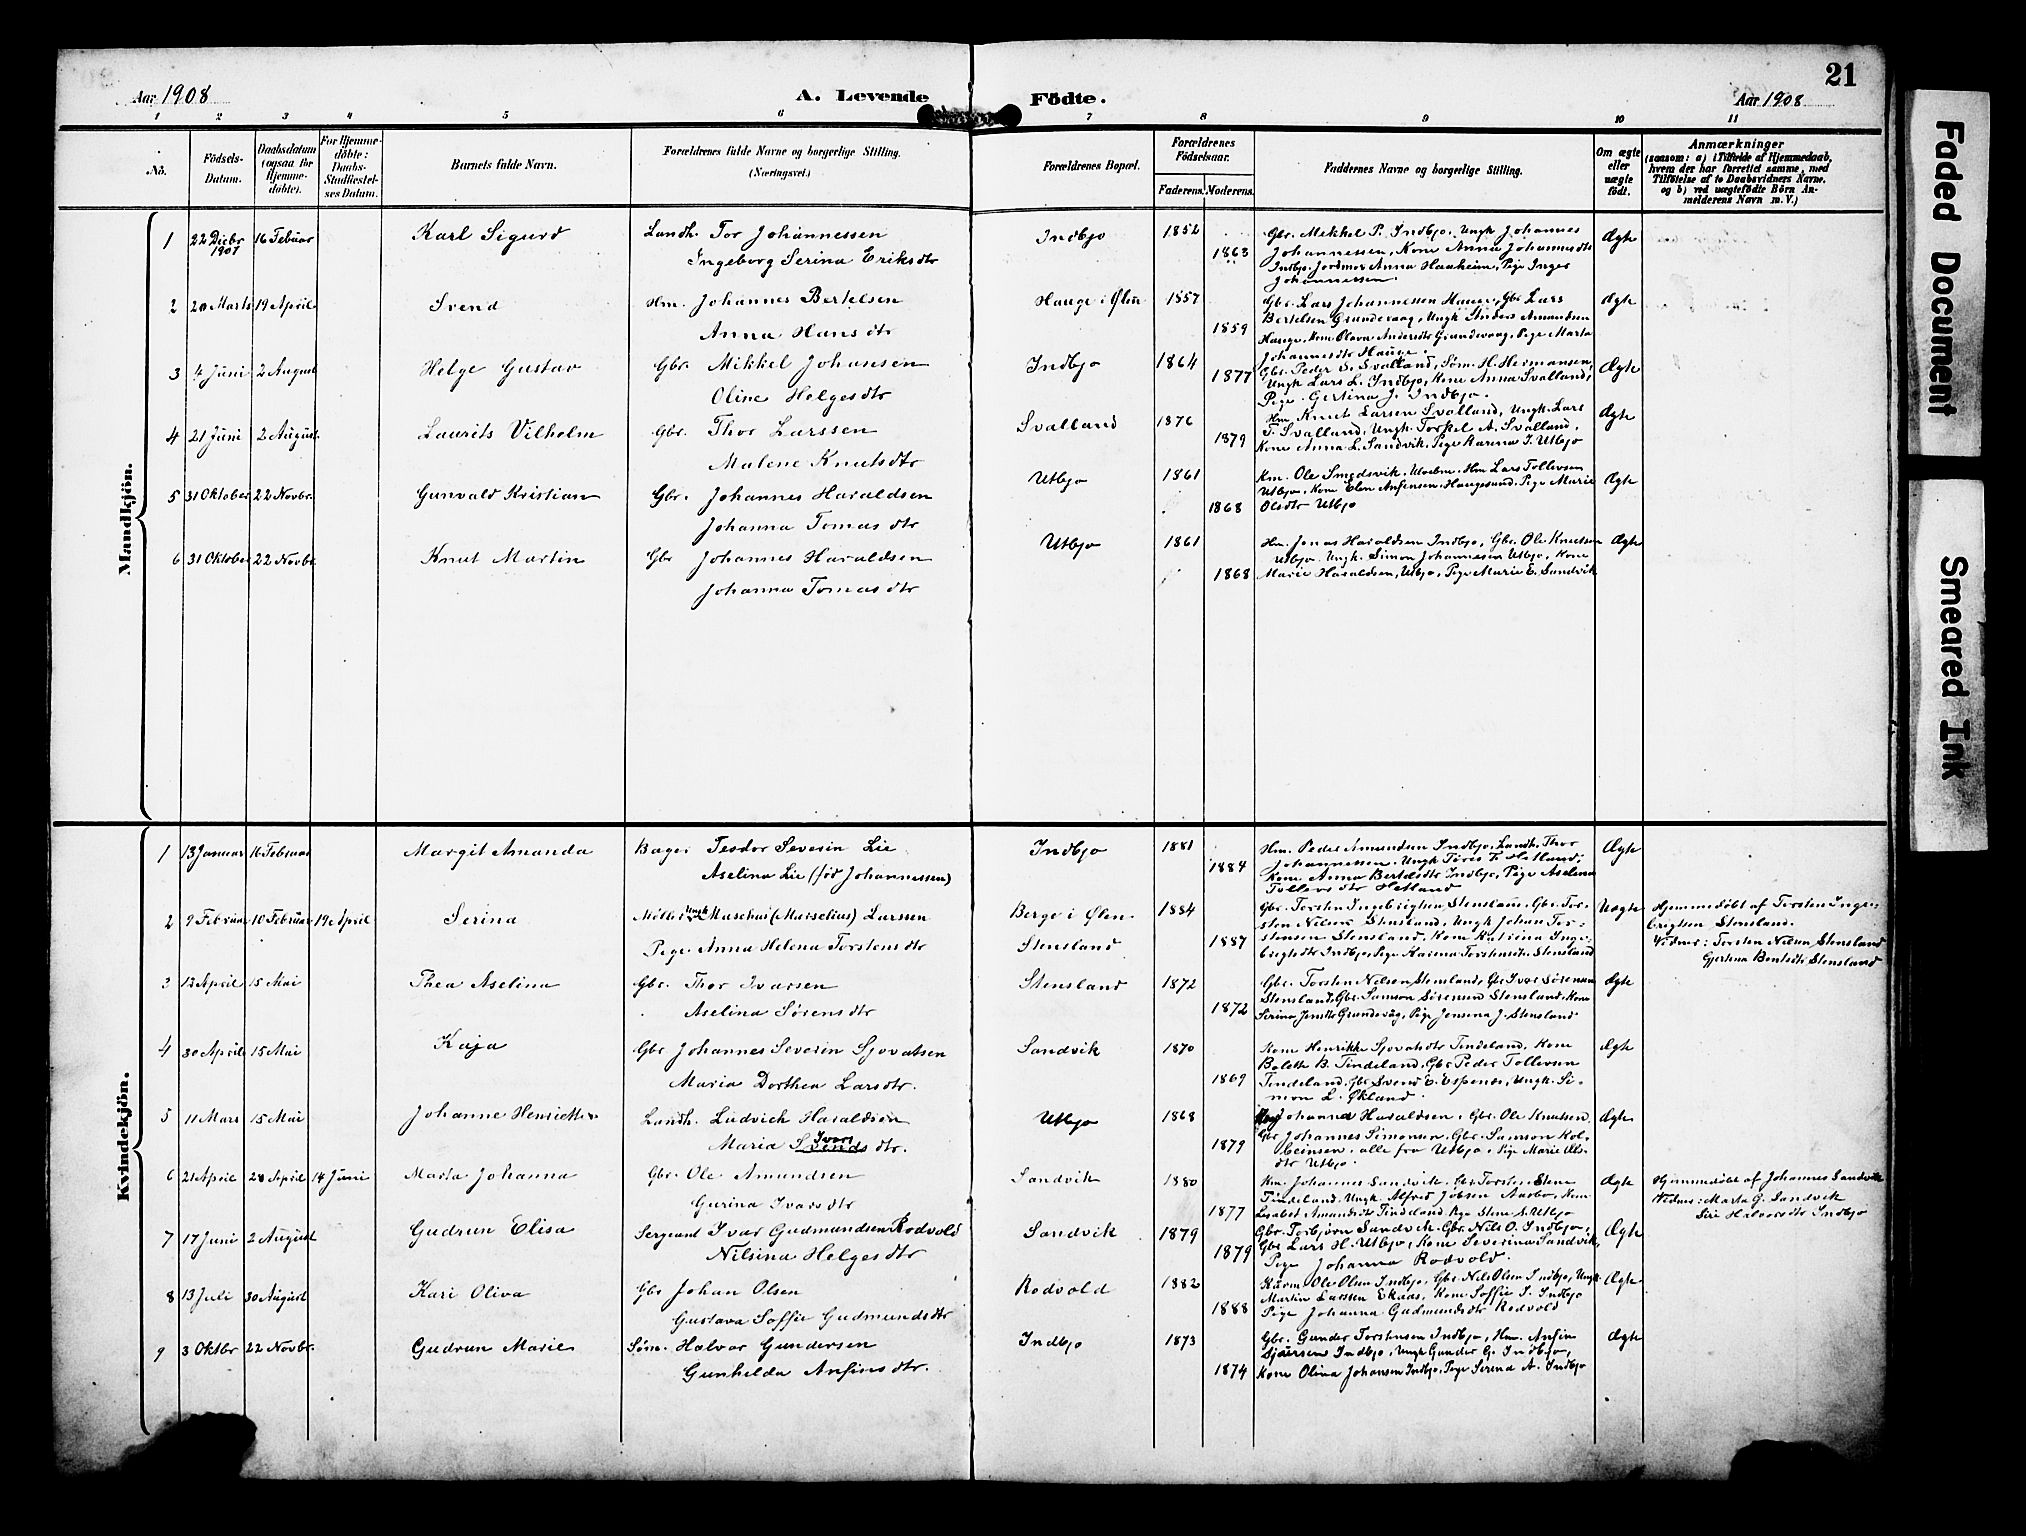 21
Aar 1908 A. Levende Födte. Aar 1908
1 2 3 4 5 6 7 8 9 10 11
No.
Födsels-Datum.
Daabsdatum (ogsaa for Hjemmedöbte).
For Hjemmedöbte: Daabs-Stadfæstelses Datum.
Barnets fulde Navn.
Forældrenes fulde Navne og borgerlige Stilling.
(Næringsvei.)
Forældrenes Bopæl.
Forældrenes Födselsaar.
Faderens. Moderens.
Faddernes Navne og borgerlige Stilling.
Om ægte eller uægte födt.
Anmærkninger
(saasom: a) i Tilfælde af Hjemmedaab,
hvem der har forrettet samme, med
Tilföielse af to Daabsvidners Navne.
og b) ved uægtefödte Börn An-
melderens Navn m. V.)
Mandkjön.
1 22 Decbr 1907 16 Febuar Karl Sigurd Landh. Tor Johannessen Indbjo 1852 Gbr. Mikkel P. Indbjo, Ungk Johannes Ægte
Ingeborg Serina Eriksdtr 1863 Johannessen, Kone Anna Johannesdtr
Indbjo. Jordmor Anna Haaheim, Pige Inger
Johannessen.
2 20 Marts 19 April Svend Hm. Johannes Bertelsen Hauge i Ølen 1857 Gbr. Lars Johannessen Hauge, Gbr Lars Ægte
Anna Hansdtr 1859 Bertelsen Grundevaag, Ungk Anders Amundsen
Hauge, Kone Olava Andersdtr Grundevaag, Pige Marta
Johannesdtr Hauge.
3 4 Juni 2 August Helge Gustav Gbr. Mikkel Johansen Indbjo 1864 Gbr. Peder S. Svalland, Søm. H. Hermansen, Ægte
Oline Helgesdtr 1877 Ungk Lars L. Indbjo, Kone Anna Svalland,
Pige Gertina J. Indbjo.
4 21 Juni 2 August Laurits Vilhelm Gbr. Thor Larssen Svalland 1876 Hm. Knut Larsen Svalland, Ungk. Lars Ægte
Malene Knutsdtr 1879 T. Svalland, Ungk. Torkel A. Svalland,
Kone Anna L. Sandvik, Pige Hanna I. Utbjo
5 31 Oktober 22 Novbr. Gunvald Kristian Gbr. Johannes Haraldsen Utbjo 1861 Km. Ole Smedsvik, Hm Lars Tollevsen Ægte
Johanna Tomasdtr 1868 Utbjo, Kone Elen Anfensen, Haugesund, Pige Marie
Olsdtr Utbjo
6 31 Oktober 22 Novbr. Knut Martin Gbr Johannes Haraldsen Utbjo 1861 Hm. Jonas Haraldsen Indbjo, Gbr. Ole Knutsen Ægte
Johanna Tomasdtr 1868 Utbjo, Ungk. Simon Johannesen Utbjo, Kone
Marie Haraldsen, Utbjo, Pige Marie E. Sandvik
Kvindekjön.
1 13 Januar 16 Februar Margit Amanda Bager Teodor Severin Lie Indbjo 1881 Hm. Peder Amundsen Indbjo, Landh. Thor Ægte
Aselina Lie (fød Johannessen) 1884 Johannessen, Ungk Tores T. Hetland,
Kone Anna Berteldtr Indbjo, Pige Aselina
Tollevsdtr Hetland
2 9 Februar 10 Februar 19 April Serina Møller Ungk Maschus (Marselius) Larssen Berge i Ølen 1884 Gbr. Torsten Ingebrigtsen Stensland, Gbr. Tor- Uægte Hjemmedøbt af Torsten Inge-
Pige Anna Helena Torstensdtr Stensland 1887 sten Nilsen Stensland, Ungk Johan Tor- brigtsen Stensland.
stensen Stensland, Kone Katrina Inge- Vidner: Torsten Nilsen Stensland
brigtsdtr Indbjo, Pige Karina Torstensdtr Stensland Gjertina Bentsdtr Stensland
3 12 April 15 Mai Thea Aselina Gbr. Thor Ivarsen Stensland 1872 Gbr. Torsten Nilsen Stensland, Gbr Ivar Sørensen Ægte
Aselina Sørensdtr 1872 Stensland, Gbr. Samson Sørensen Stensland, Kone
Serina Jensdtr Grundevåg, Pige Jensena J. Stensland
4 30 April 15 Mai Kaja Gbr Johannes Severin Sjovatsen Sandvik 1870 Kone Henrikke Sjovatsdtr Tindeland, Kone Ægte
Maria Dorthea Larsdtr. 1869 Bolette B. Tindeland, Gbr Peder Tollevsen
Tindeland, Gbr Svend E. Espenes, Ungk. Si-
mon L. Økland.
5 11 Mars 15 Mai Johanne Henriette Landh. Ludvich Haraldsen Utbjo 1868 Johannes Haraldsen, Gbr. Ole Knutsen, Ægte
Maria Svends Ivarsdtr. 1879 Gbr Johannes Simonsen, Gbr. Samson Kol-
beinsen, alle fra Utbjo, Pige Marie Ols-
dtr Utbjo.
6 21 April 28 April 14 Juni Marta Johanna Gbr. Ole Amundsen Sandvik 1880 Km. Johannes Sandvik, Gbr Torsten Stene Ægte Hjemmedøbt af Johannes Sandvik
Gurina Ivarsdtr 1877 Tindeland, Ungk. Alfred Jobsen Aarbo, Kone Vidner: Marta G. Sandvik
Lisabet Amundsdtr Tindeland, Pige Stene S. Utbjo Siri Halvorsdtr Indbjo
7 17 Juni 2 August Gudrun Elisa Sergeant Ivar Gudmundsen Rodvold Sandvik 1879 Gbr. Torbjørn Sandvik, Gbr. Nils O. Indbjo, Ægte
Nilsina Helgesdtr 1879 Gbr Lars H. Utbjo, Kone Severina Sandvik,
Pige Johanna Rodvold.
8 13 Juli 30 August Kari Oliva Gbr Johan Olsen Rodvold 1882 Kaarm Ole Olsen Indbjo, Gbr. Nils Olsen Indbjo, Ungk Ægte
Gustava Soffie Gudmundsdtr 1888 Martin Larssen Ekaas, Kone Soffie T. Indbjo
Pige Johanna Gudmundsdtr Rodvold
9 3 Oktbr 22 Novbr. Gudrun Marie Søm. Halvor Gundersen Indbjo 1873 Gbr. Gunder Torstensen Indbjo, Hm. Anfin Ægte
Gunhilda Anfinsdtr. 1874 Sjursen Indbjo, Ungk Gunder G. Indbjo,
Kone Olina Johansen Indbjo, Pige Serena A. Indbjo
Faded Document
Smeared Ink